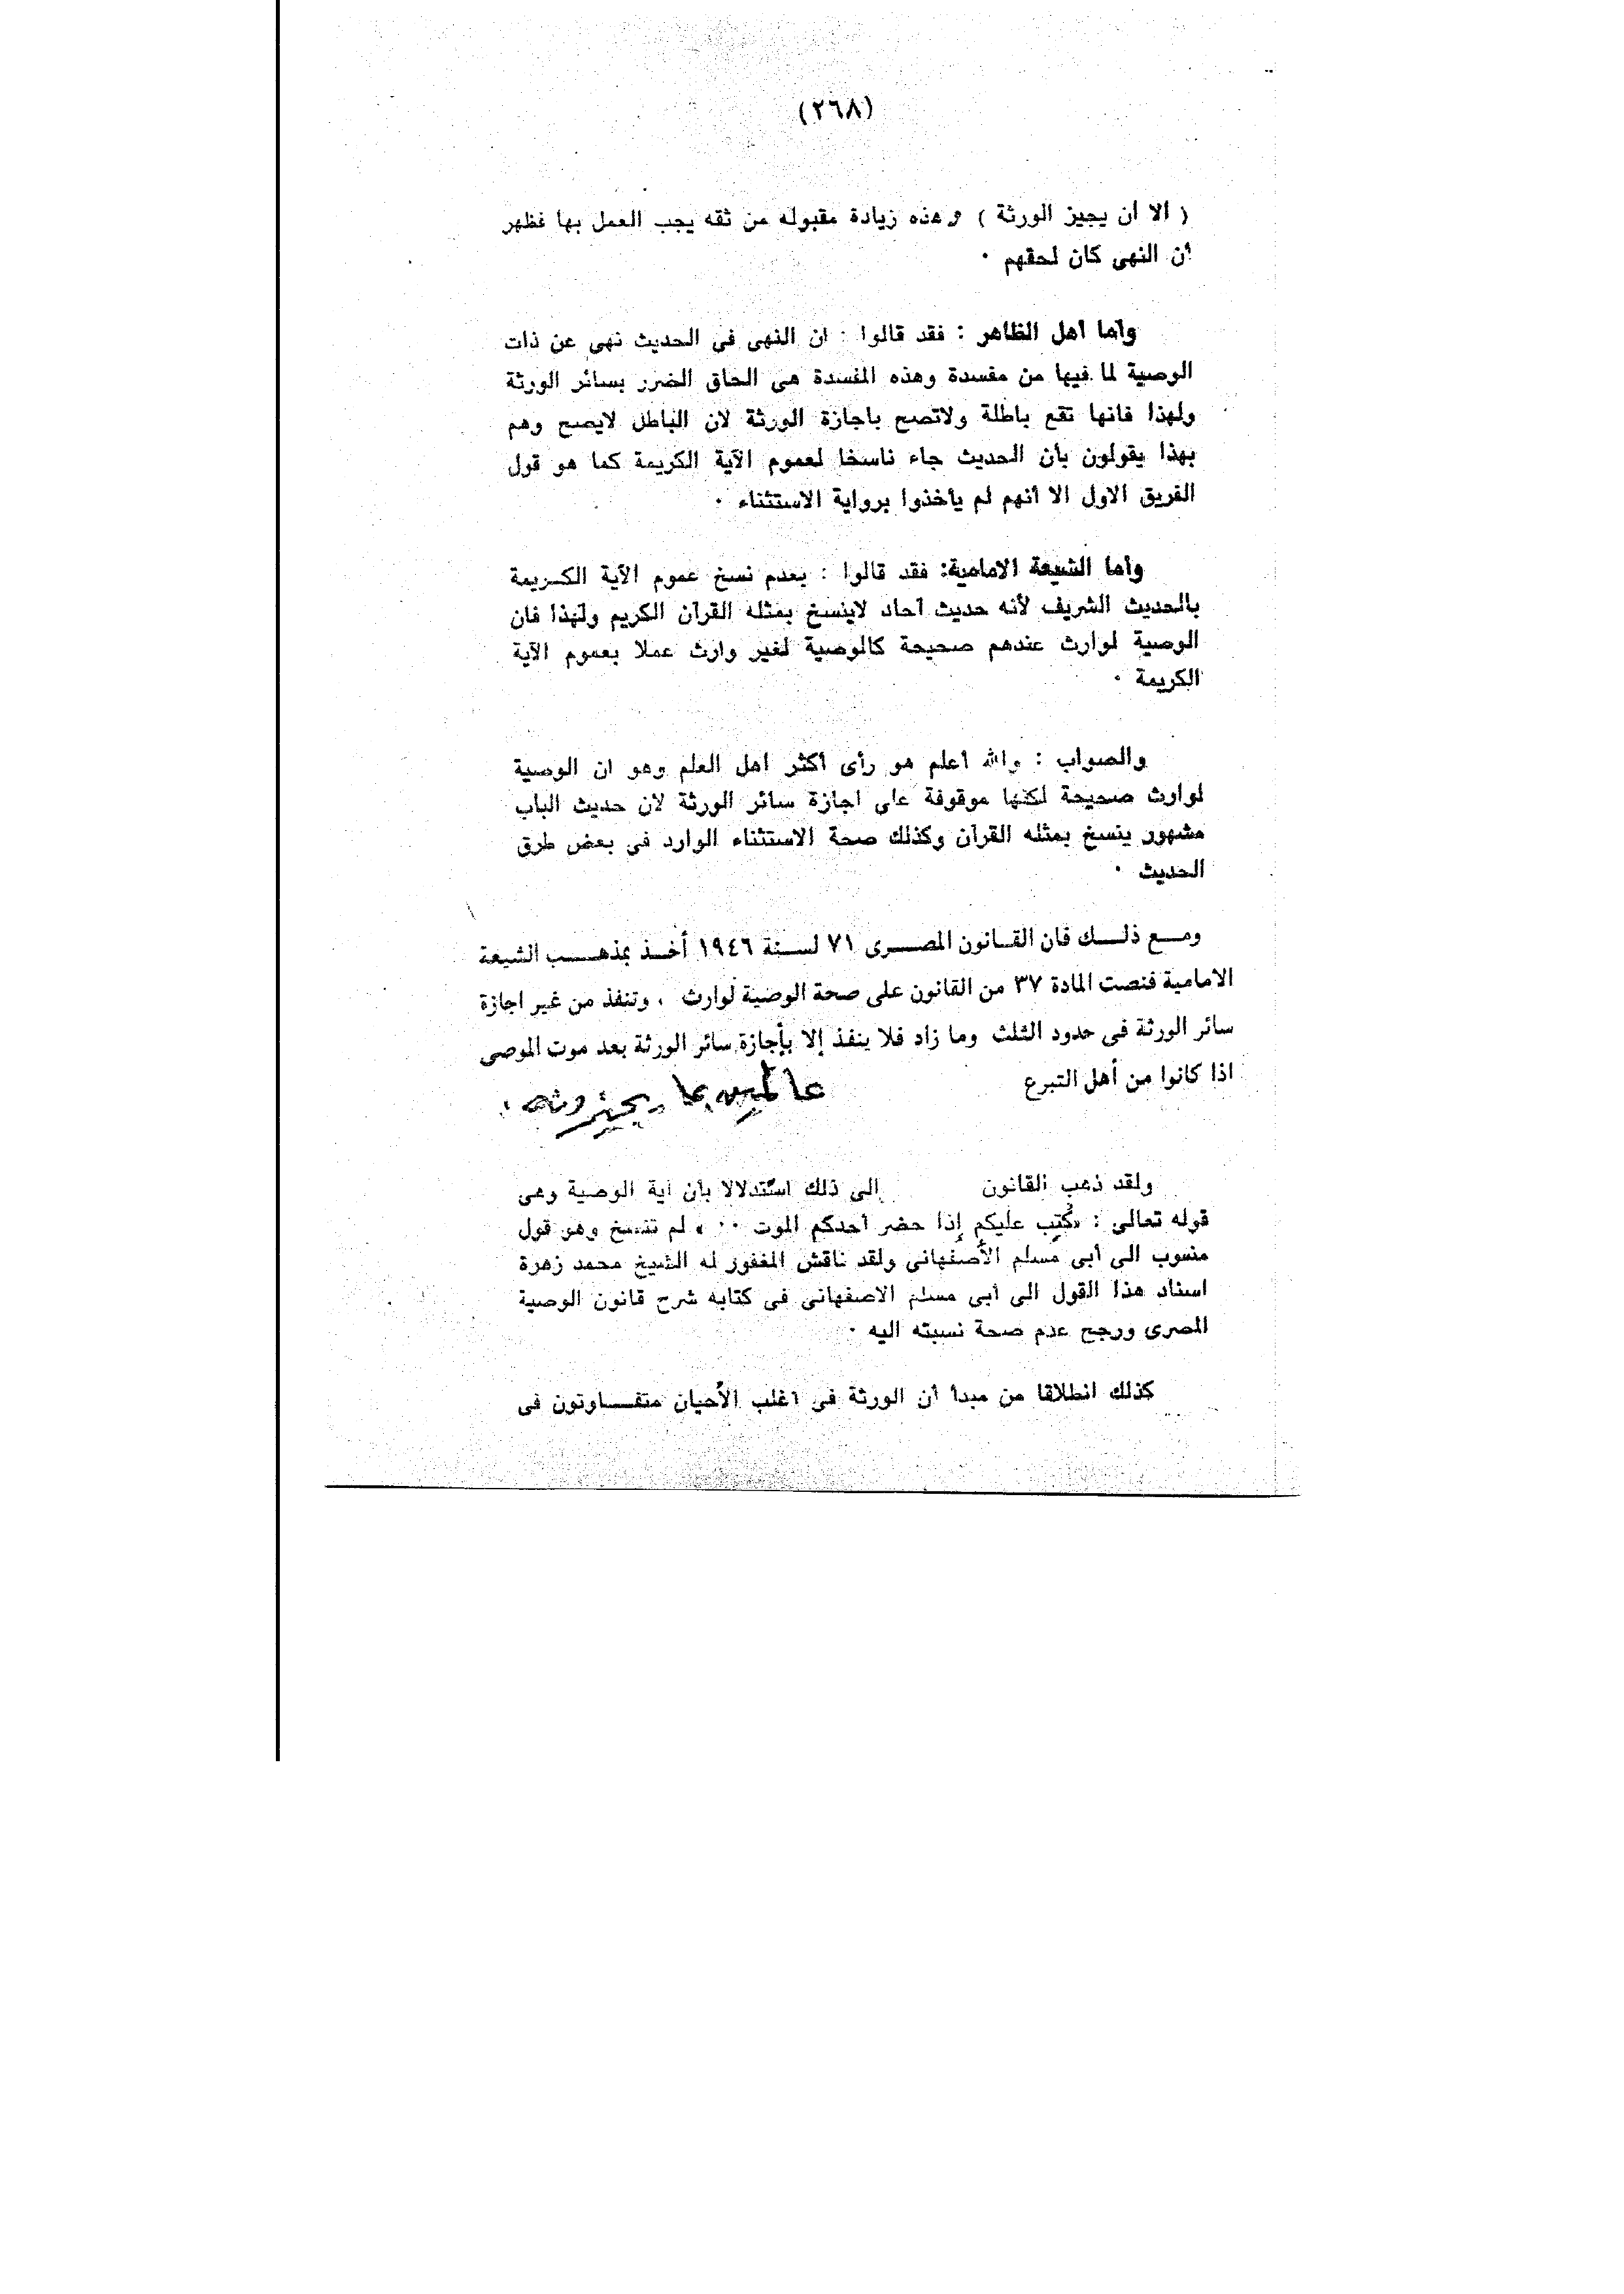 (٢٦٨)
( الا ان يجيز الورثة ) وهذه زيادة مقبوله من ثقه يجب العمل بها فظهر
أن النهى كان لحقهم ٠
وأما أهل الظاهر : فقد قالوا : ان النهى فى الحديث نهى عن ذات
الوصية لما فيها من مفسدة وهذه المفسدة هى الحاق الضرر بسائر الورثة
ولهذا فانها تقع باطلة ولاتصح باجازة الورثة لان الباطل لايصح وهم
بهذا يقولون بأن الحديث جاء ناسخا لعموم الآية الكريمة كما هو قول
الفريق الاول الا أنهم لم يأخذوا برواية الاستثناء ٠
وأما الشيعة الامامية: فقد قالوا : بعدم نسخ عموم الآية الكريمة
بالحديث الشريف لأنه حديث آحاد لاينسخ بمثله القرآن الكريم ولهذا فان
الوصية لوارث عندهم صحيحة كالوصية لغير وارث عملا بعموم الآية
الكريمة ٠
والصواب : والله أعلم هو رأى أكثر اهل العلم وهو ان الوصية
لوارث صحيحة لكنها موقوفة على اجازة سائر الورثة لان حديث الباب
مشهور ينسخ بمثله القرآن وكذلك صحة الاستثناء الوارد فى بعض طرق
الحديث ٠
ومع ذلك فان القانون المصرى ٧١ لسنة ١٩٤٦ أخذ بمذهب الشيعة
الامامية فنصت المادة ٣٧ من القانون على صحة الوصية لوارث ، وتنفذ من غير اجازة
سائر الورثة فى حدود الثلث وما زاد فلا ينفذ إلا بأجازة سائر الورثة بعد موت الموصى
اذا كانوا من أهل التبرع عالمين بما يجيزونه ٠
ولقد ذهب القانون الى ذلك استدلالا بأن آية الوصية وهى
قوله تعالى : «كُتِب عليكم إذا حضر أحدكم الموت ٠٠ » لم تنسخ وهو قول
منسوب الى أبى مسلم الأصفهانى ولقد ناقش المغفور له الشيخ محمد زهرة
اسناد هذا القول الى أبى مسلم الاصفهانى فى كتابه شرح قانون الوصية
المصرى ورجح عدم صحة نسبته اليه ٠
كذلك انطلاقا من مبدأ أن الورثة فى اغلب الأحيان متفاوتون فى